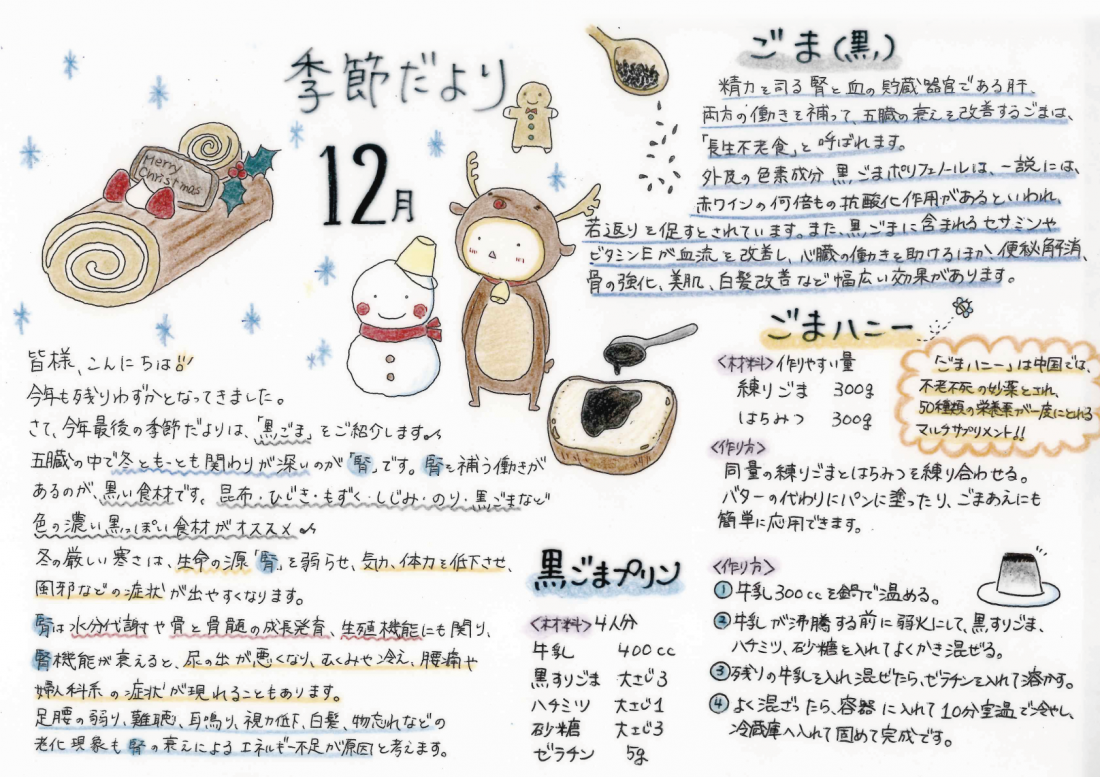 季節だより
12月
Merry
Christmas
皆様、こんにちは
今年も残りわずかとなってきました。
さて、今年最後の季節だよりは、「黒ごま」をご紹介します。
五臓の中で冬ともっとも関わりが深いのが「腎」です。腎を補う働きが
あるのが、黒い食材です。昆布・ひじき・もずく・しじみ・のり・黒ごまなど
色の濃い黒っぽい食材がオススメ
冬の厳しい寒さは、生命の源「腎」を弱らせ、気力、体力を低下させ、
風邪などの症状が出やすくなります。
腎は水分代謝や骨と骨髄の成長発育、生殖機能にも関り、
腎機能が衰えると、尿の出が悪くなり、むくみや冷え、腰痛や
婦人科系の症状が現れることもあります。
足腰の弱り、難聴、耳鳴り、視力低下、白髪、物忘れなどの
老化現象も腎の衰えによるエネルギー不足が原因と考えます。
ごま(黒)
精力を司る腎と血の貯蔵器官である肝、
両方の働きを補って、五臓の衰えを改善するごまは、
「長生不老食」と呼ばれます。
外皮の色素成分黒ごまポリフェノールは、一説には、
赤ワインの何倍もの抗酸化作用があるといわれ、
若返りを促すとされています。また、黒ごまに含まれるセサミンや
ビタミンEが血流を改善し、心臓の働きを助けるほか、便秘解消、
骨の強化、美肌、白髪改善など幅広い効果があります。
ごまハニー
<材料>作りやすい量
練りごま 300g
はちみつ 300g
「ごまハニー」は中国では、
不老不死の妙薬とされ、
50種類の栄養素が一度にとれる
マルチサプリメント!!
<作り方>
同量の練りごまとはちみつを練り合わせる。
バターの代わりにパンに塗ったり、ごまあえにも
簡単に応用できます。
黒ごまプリン
<材料>4人分
牛乳 400cc
黒すりごま 大さじ3
ハチミツ 大さじ1
砂糖 大さじ3
ゼラチン 5g
<作り方>
① 牛乳300ccを鍋で温める。
② 牛乳が沸騰する前に弱火にして、黒すりごま、
ハチミツ、砂糖を入れてよくかき混ぜる。
③ 残りの牛乳を入れ混ぜたら、ゼラチンを入れて溶かす。
④ よく混ざったら、容器に入れて10分室温で冷やし、
冷蔵庫へ入れて固めて完成です。